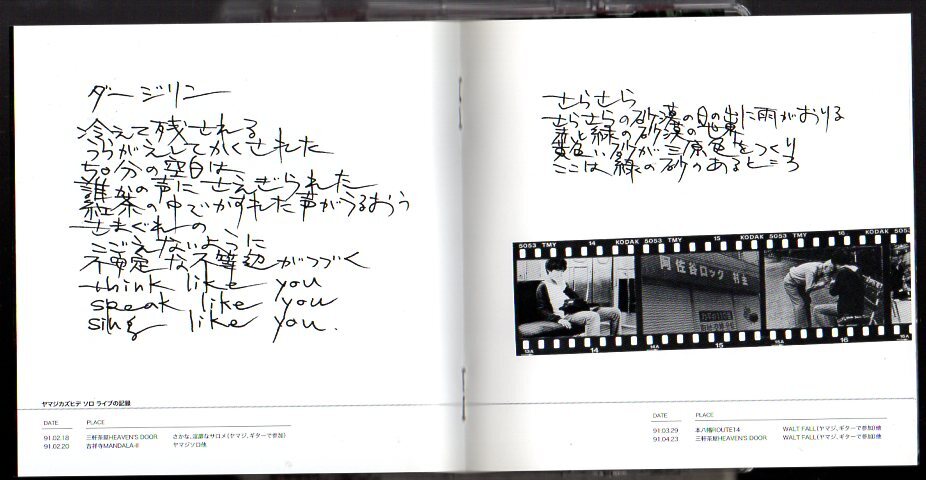 ダージリン
冷えて残される
うらがえしてかくされた
50分の空白は、
誰かの声にさえぎられた
紅茶の中でかすれた声がうるおう
きまぐれの
こごえないように
不安定な不等辺がつづく
think like you
speak like you
sing like you.
ヤマジカズヒデ ソロ ライブの記録
DATE PLACE
91.02.18 三軒茶屋HEAVEN'S DOOR さかな、淫靡なサロメ(ヤマジ、ギターで参加)
91.02.20 吉祥寺MANDALA-II ヤマジソロ他
さらさら
さらさらの砂漠の日の出に雨がおりる
赤と緑の砂漠の世界
黄色い砂が三原色をつくり
ここは緑の砂のあるところ
5053 TMY 14 KODAK 5053 TMY 15 KODAK 5053 TMY 16 KODAK
阿佐谷ロック
13A 14 14A 15 15A 16 16A
DATE PLACE
91.03.29 本八幡ROUTE14 WALT FALL(ヤマジ、ギターで参加)他
91.04.23 三軒茶屋HEAVEN'S DOOR WALT FALL(ヤマジ、ギターで参加)他